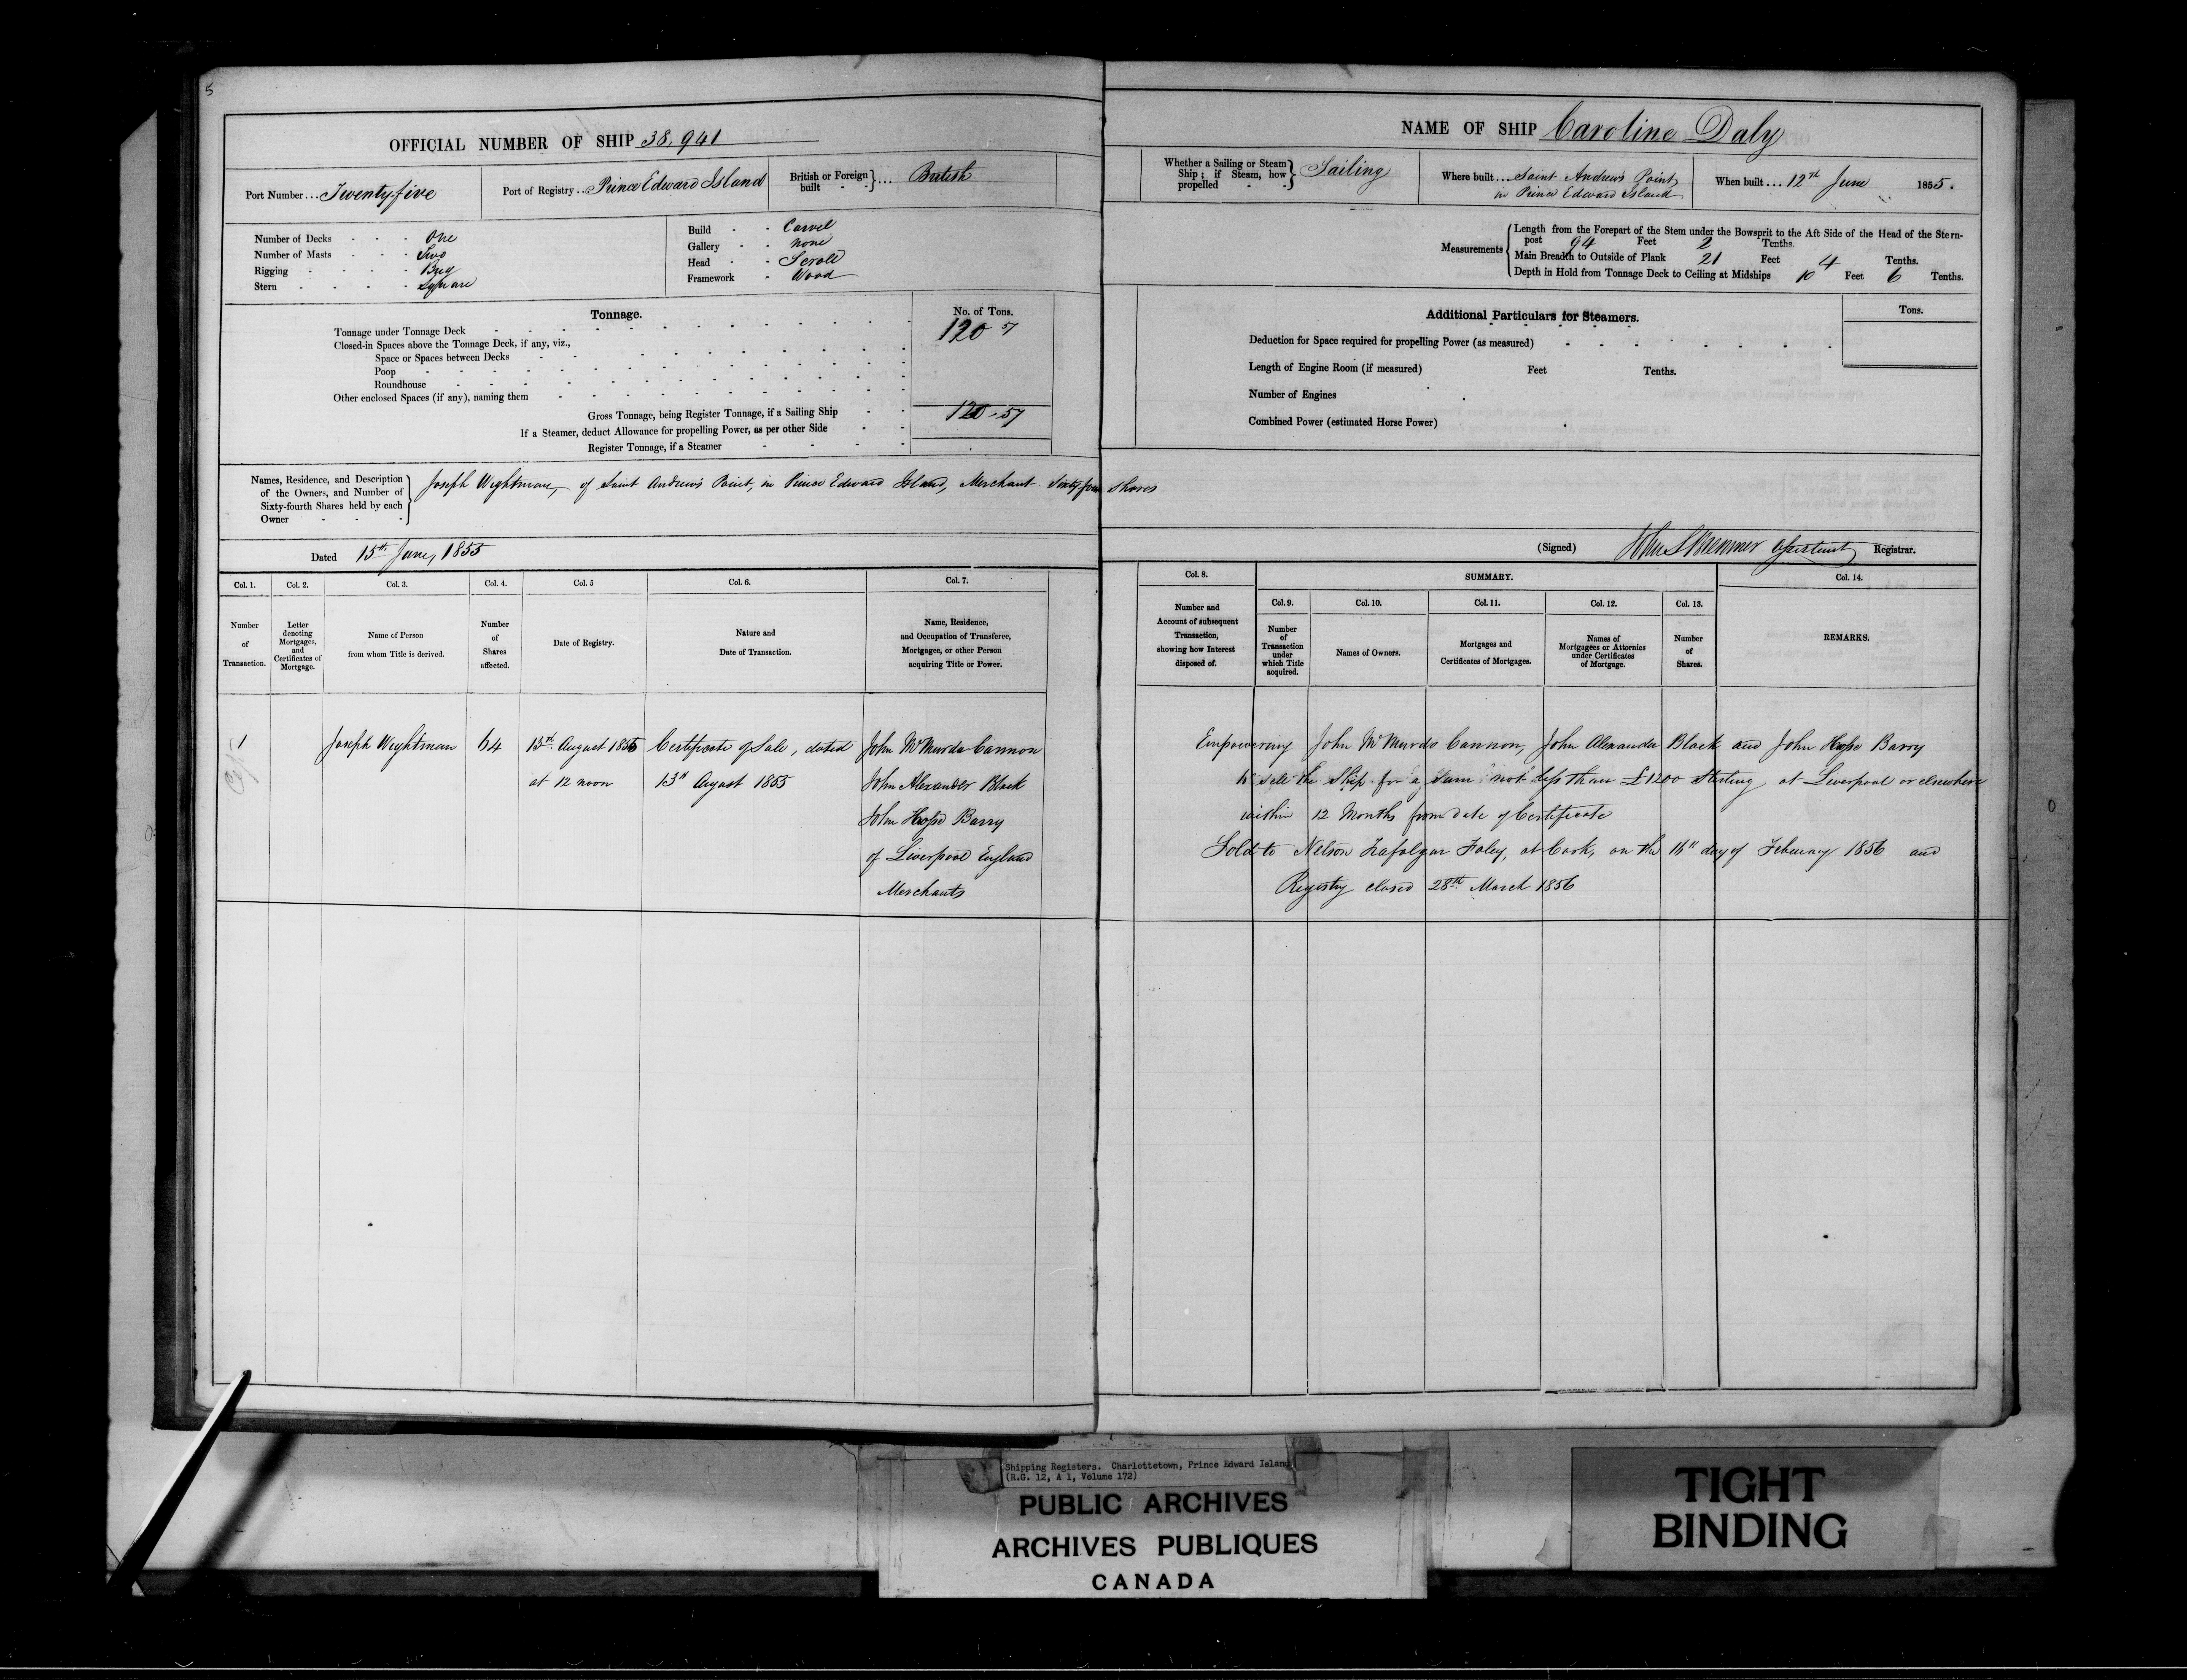 5
OFFICIAL NUMBER OF SHIP 38,941
Port Number... Twenty five
Port of Registry.. Prince Edward Island
British or Foreign built - - } ... British
Number of Decks - - - One
Number of Masts - - - Two
Rigging - - - - Brig
Stern - - - - Square
Build - - Carvel
Gallery - - None
Head - - Scroll
Framework - Wood
Tonnage.
No. of Tons.
Tonnage under Tonnage Deck 120 57
Closed-in Spaces above the Tonnage Deck, if any, viz.,
Space or Spaces between Decks
Poop
Roundhouse
Other enclosed Spaces (if any), naming them
Gross Tonnage, being Register Tonnage, if a Sailing Ship 120-57
If a Steamer, deduct Allowance for propelling Power, as per other Side
Register Tonnage, if a Steamer
Names, Residence, and Description of the Owners, and Number of Sixty-fourth Shares held by each Owner } Joseph Wightman, of Saint Andrews Point, in Prince Edward Island, Merchant Sixty four shares
Dated 15th June, 1855
NAME OF SHIP Caroline Daly
Whether a Sailing or Steam Ship; if Steam, how propelled } Sailing
Where built... Saint Andrews Point, in Prince Edward Island
When built... 12th June 1855.
Measurements
Length from the Forepart of the Stem under the Bowsprit to the Aft Side of the Head of the Stern-
post 94 Feet 2 Tenths.
Main Breadth to Outside of Plank 21 Feet 4 Tenths.
Depth in Hold from Tonnage Deck to Ceiling at Midships 10 Feet 6 Tenths.
Additional Particulars for Steamers.
Tons.
Deduction for Space required for propelling Power (as measured)
Length of Engine Room (if measured) Feet Tenths.
Number of Engines
Combined Power (estimated Horse Power)
(Signed) John S Bremner assistant Registrar.
Col. 1. Col. 2. Col. 3. Col. 4. Col. 5 Col. 6. Col. 7.
Number of Transaction.
Letter denoting Mortgages, and Certificates of Mortgage.
Name of Person from whom Title is derived.
Number of Shares affected.
Date of Registry.
Nature and Date of Transaction.
Name, Residence, and Occupation of Transferee, Mortgagee, or other Person acquiring Title or Power.
Col. 8.
Number and Account of subsequent Transaction, showing how Interest disposed of.
SUMMARY.
Col. 9. Col. 10. Col. 11. Col. 12. Col. 13.
Number of Transaction under which Title acquired.
Names of Owners.
Mortgages and Certificates of Mortgages.
Names of Mortgagees or Attornies under Certificates of Mortgage.
Number of Shares.
Col. 14.
REMARKS.
1 Joseph Wightman 64 13th August 1855 Certificate of Sale, dated John McMurdo Cannon
at 12 noon 13th August 1855 John Alexander Black
John Hope Barry
of Liverpool England
Merchants
Empowering John McMurdo Cannon, John Alexander Black and John Hope Barry
to sell the Ship for a sum not less than £1200 Sterling, at Liverpool or elsewhere
within 12 Months from date of Certificate
Sold to Nelson Trafalgar Foley, at Cork, on the 16th day of February 1856 and
Registry closed 28th March 1856
Shipping Registers. Charlottetown, Prince Edward Island
(R.G. 12, A 1, Volume 172)
PUBLIC ARCHIVES
ARCHIVES PUBLIQUES
CANADA
TIGHT
BINDING